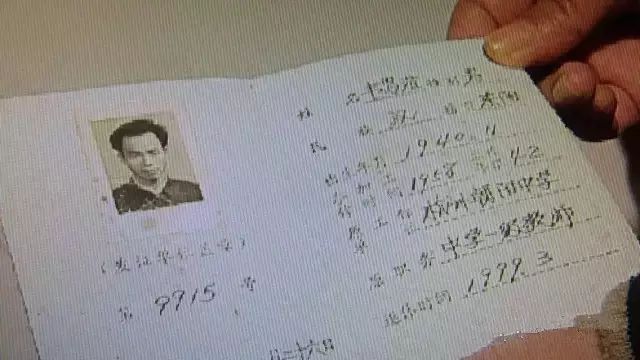 （发证单位盖章）
第 9915 号
月二十六日
姓名 性别 男
民族 汉 籍贯 东阳
出生年月 1940.11
参加工作时间 1958 42
原工作单位 杭州朝阳中学
原职务 中学一级教师
退休时间 1999.3